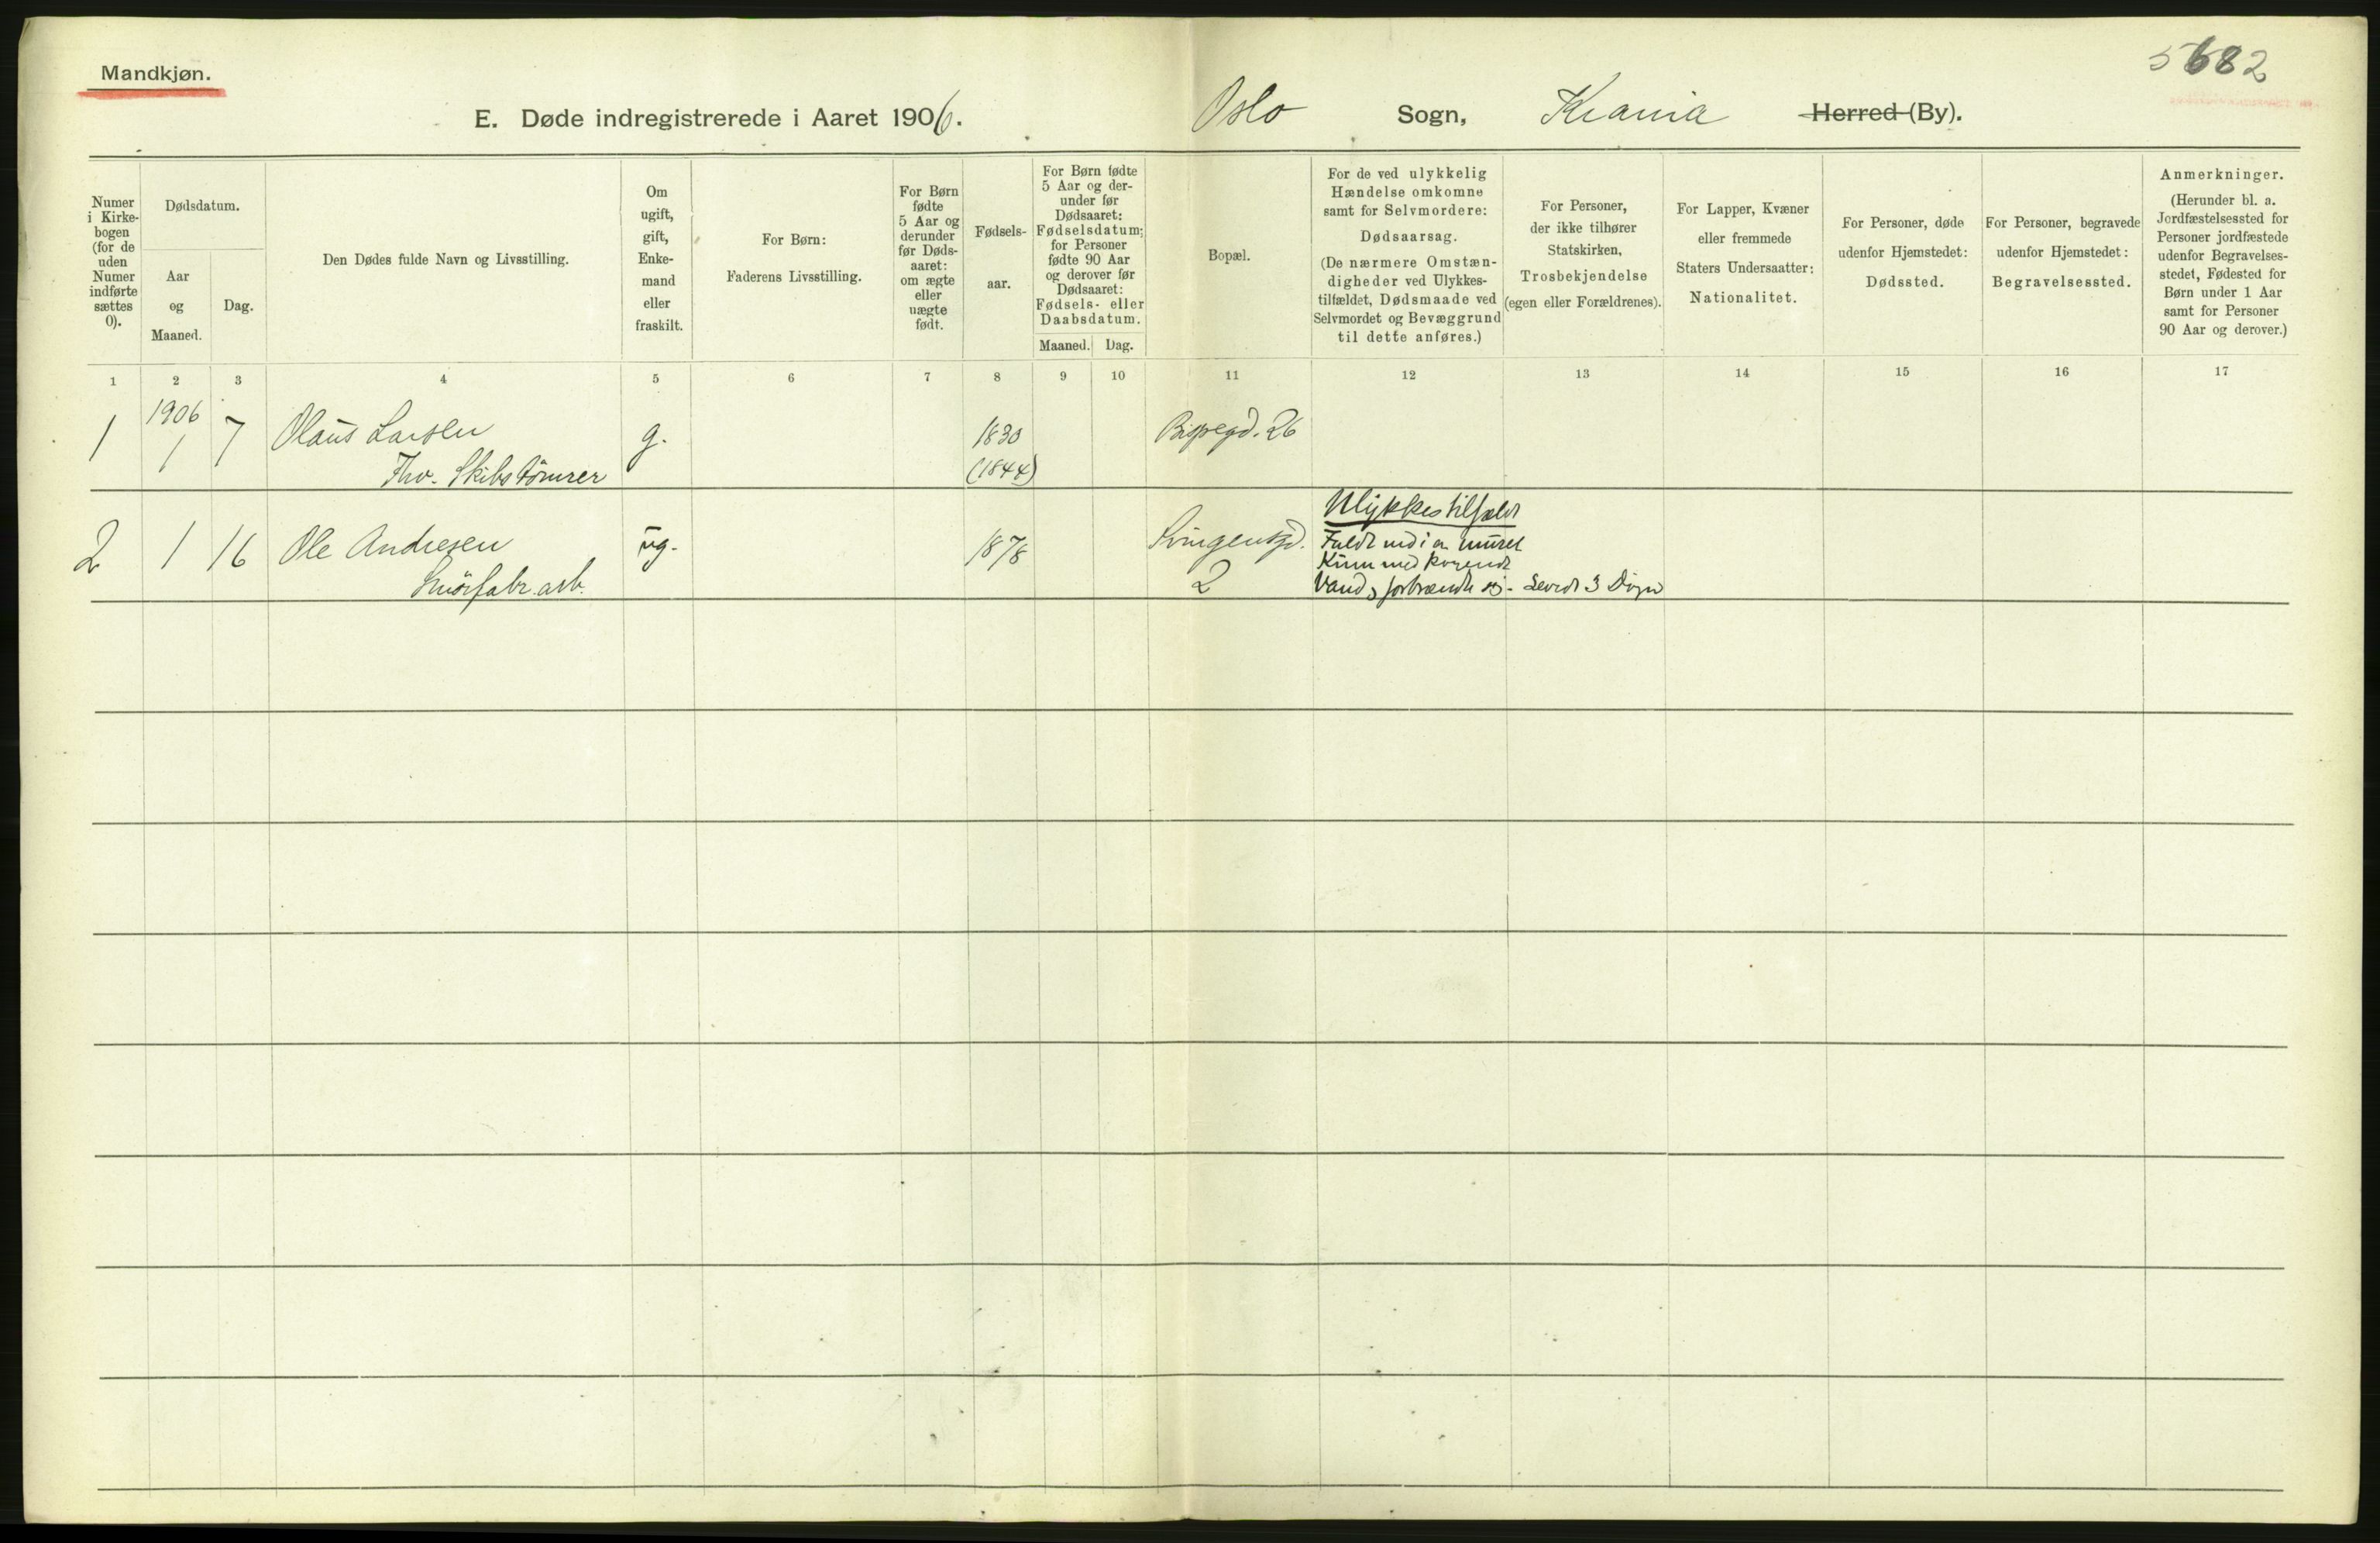 Mandkjøn.
5682
E. Døde indregistrerede i Aaret 1906. Oslo Sogn, Krania Herred (By).
Numer
i Kirke-
bogen
(for de
uden
Numer
indførte
sættes
0).
Dødsdatum.
Aar
og
Maaned.
Dag.
Den Dødes fulde Navn og Livsstilling.
Om
ugift,
gift,
Enke-
mand
eller
fraskilt.
For Børn:
Faderens Livsstilling.
For Børn
fødte
5 Aar og
derunder
før Døds-
aaret:
om ægte
eller
uægte
født.
Fødsels-
aar.
For Børn fødte
5 Aar og der-
under før
Dødsaaret:
Fødselsdatum;
for Personer
fødte 90 Aar
og derover før
Dødsaaret:
Fødsels- eller
Daabsdatum.
Maaned. Dag.
Bopæl.
For de ved ulykkelig
Hændelse omkomne
samt for Selvmordere:
Dødsaarsag.
(De nærmere Omstæn-
digheder ved Ulykkes-
tilfældet, Dødsmaade ved
Selvmordet og Bevæggrund
til dette anføres.)
For Personer,
der ikke tilhører
Statskirken,
Trosbekjendelse
(egen eller Forældrenes).
For Lapper, Kvæner
eller fremmede
Staters Undersaatter:
Nationalitet.
For Personer, døde
udenfor Hjemstedet:
Dødssted.
For Personer, begravede
udenfor Hjemstedet:
Begravelsessted.
Anmerkninger.
(Herunder bl. a.
Jordfæstelsessted for
Personer jordfæstede
udenfor Begravelses-
stedet, Fødested for
Børn under 1 Aar
samt for Personer
90 Aar og derover.)
1 2 3 4 5 6 7 8 9 10 11 12 13 14 15 16 17
1906
1 1 7 Olaus Larsen g. 1830 Bispegd. 26
Fhv. Skibstømrer (1844)
Ulykkestilfældt
2 1 16 Ole Andresen ug. 1878 Svingensgd. Faldt ned i en muret
Kum med kogende
Smörfabr. arb. 2 Vand, forbrændte sig. Levede 3 Døgn